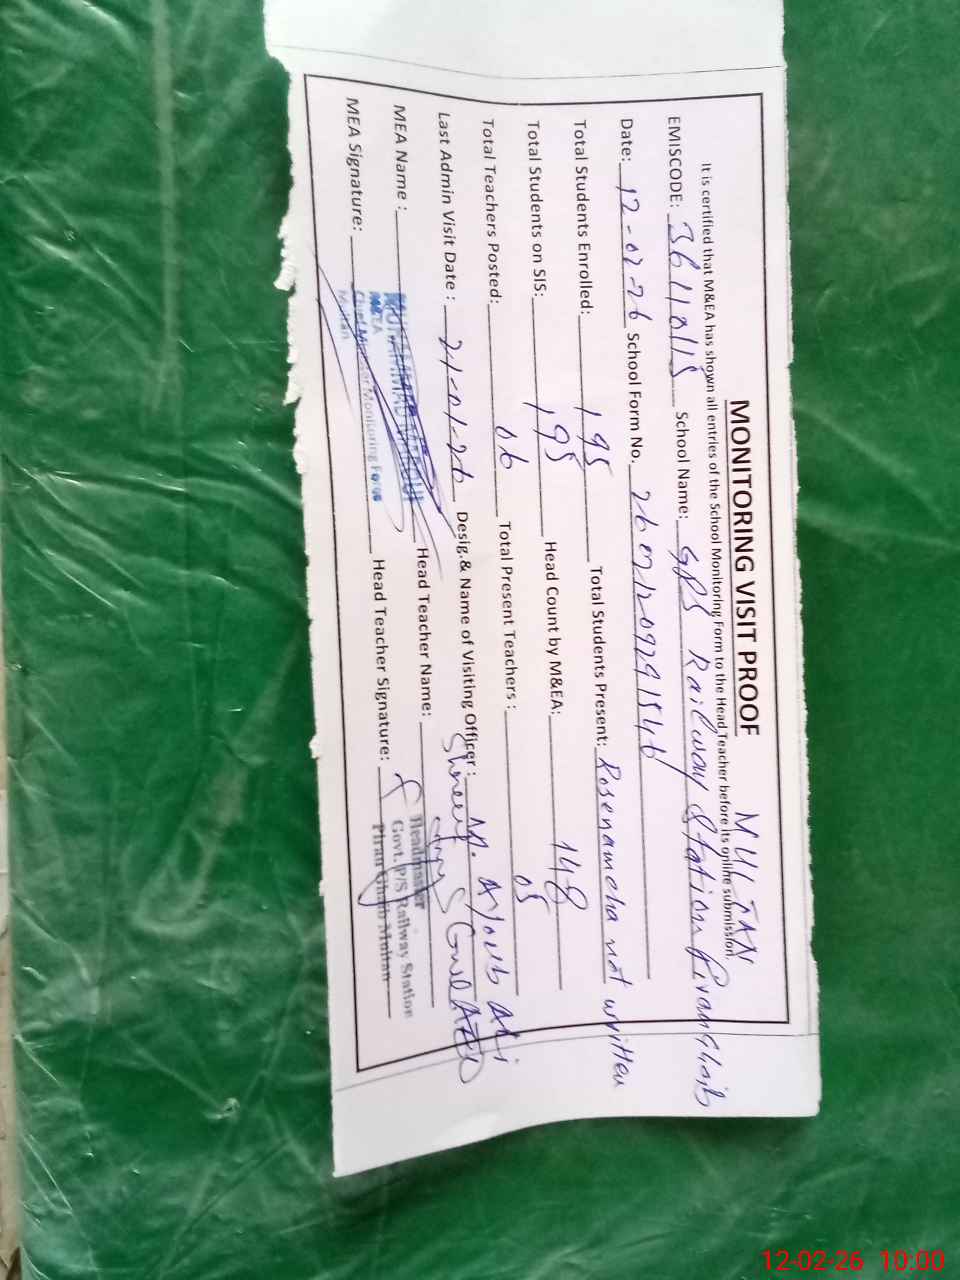 MONITORING VISIT PROOF MULTAN
It is certified that M&EA has shown all entries of the School Monitoring Form to the Head Teacher before its online submission.
EMISCODE: 36110115 School Name: GPS Railway Station Piranghaib
Date: 12-02-26 School Form No. 
Total Students Enrolled: 195 Total Students Present: Rosenamcha not written
Total Students on SIS: 195 Head Count by M&EA: 148
Total Teachers Posted: 06 Total Present Teachers : 05
Last Admin Visit Date : 21-01-26 Desig.& Name of Visiting Officer : M. Ayoub AEO
MEA Name : Head Teacher Name:
MEA Signature: Head Teacher Signature:
MEA
Chief Minister Monitoring Force
Multan
Headmaster
Govt. P/S Railway Station
Piran Ghaib Multan
12-02-26 10:00